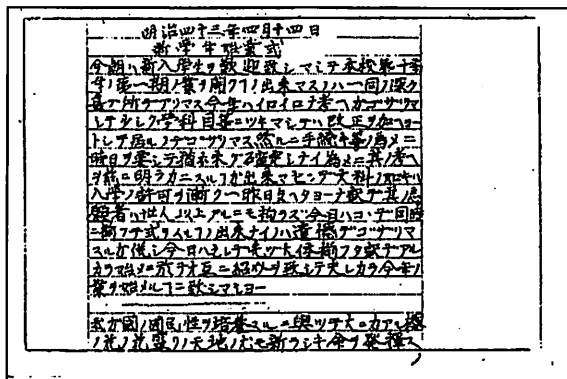 明治四十三年四月十四日
新学年始業式
今朝ハ新入学生ヲ歓迎致シマシテ本校第十
年ノ第一期ノ業ヲ開ク ノ出来マス ハ一同ノ深ク
喜 所デアリマス今年ハイロイロナ考ヘガゴザリマ
シテ少シク学科目等ニツキマシテハ改正ヲ加ヘヨー
トシテ居ル デゴザリマス然ルニ手続キ等ノ為メニ
時日ヲ要シテ猶未ダ 確定シナイ為メニ其ノ考ヘ
ヲ茲ニ明ラカニスル ガ出来マセンデ文科ノ如キハ
入学ノ許可ヲ漸ク一昨日 ヘタヨーナ訳デ其ノ志
願者ハ廿人以上アルニモ拘ラズ今日ハコヽデ同時
ニ揃フテ式ヲ ノ出来ナイノハ遺憾デゴザリマ
スルガ併シ今日ハ シテ先ヅ大体揃フタ訳デアル
カラ始メニ於テオ互ニ紹介ヲ致シテ夫レカラ今年ノ
業ヲ始メル ニ致シマシヨー
我ガ国ノ国民性ヲ培養スルニ与ツテ大ニ力アル桜
ノ花ノ 天地ノ モ新ラシキ命ヲ発揮ス